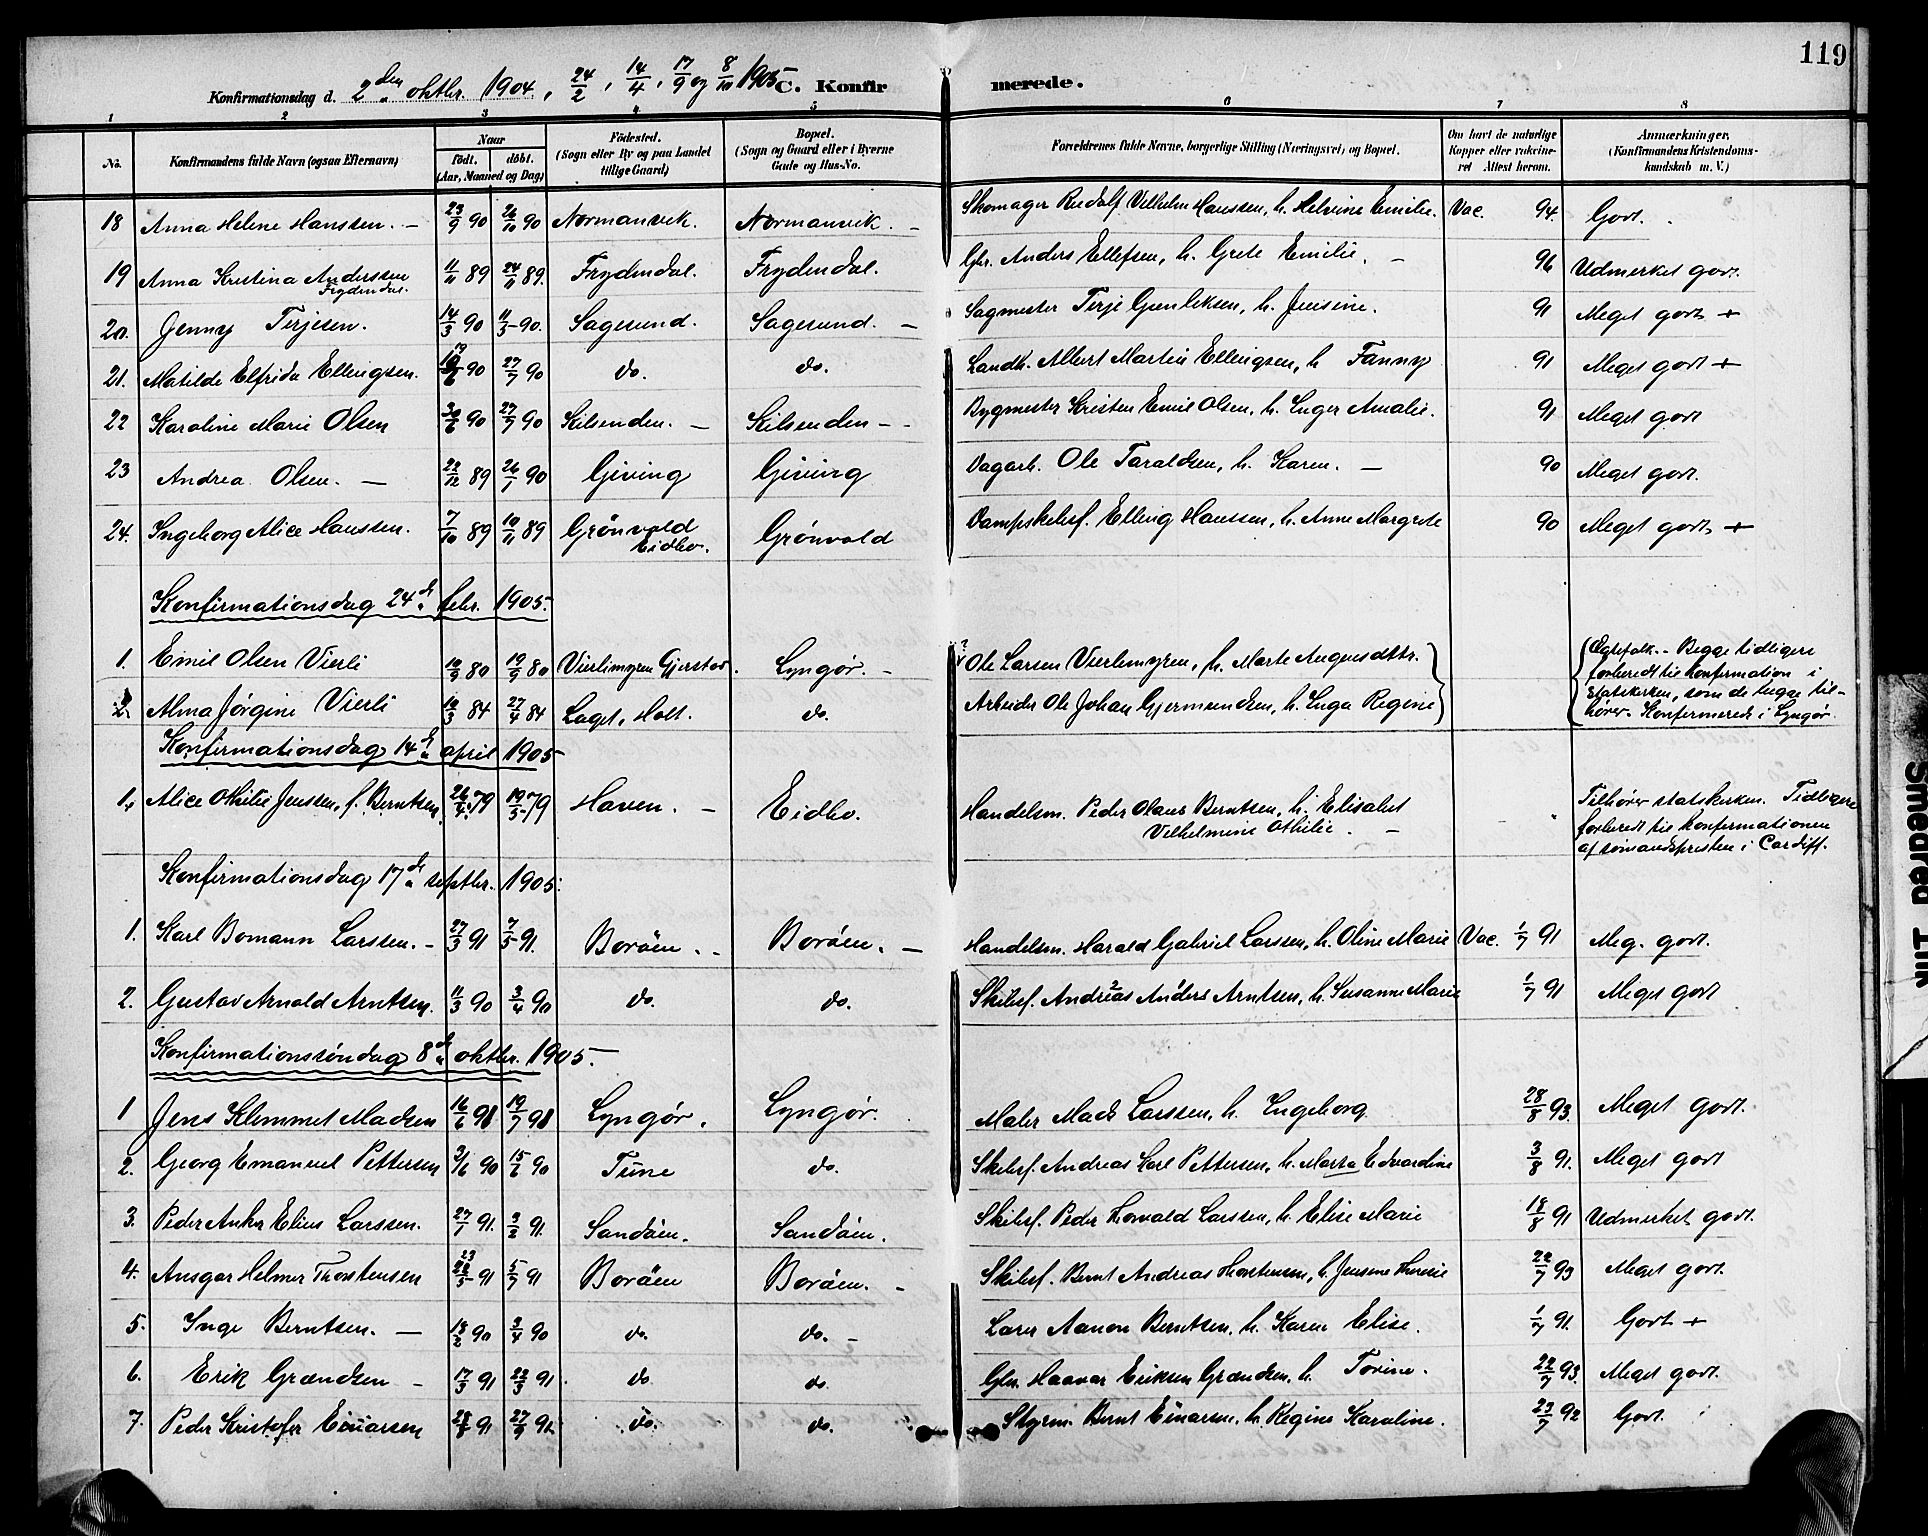 119
Konfirmationsdag d. 2den oktbr. 1904, 24/2, 14/4, 17/9 og 8/10 1905 C. Konfirmerede.
1 2 3 4 5 6 7 8
No. Konfirmandens fulde Navn (ogsaa Efternavn) Naar født. døbt. (Aar, Maaned og Dag) Födested. (Sogn eller By og paa Landet tillige Gaard) Bopæl. (Sogn og Gaard eller i Byerne Gade og Hus-No. Forældrenes fulde Navne, borgerlige Stilling (Næringsvei) og Bopæl. Om havt de naturlige Kopper eller vaccineret Attest herom. Anmærkninger, (Konfirmandens Kristendomskundskab m. V.)
18 Anna Helene Hanssen. – 23/9 90 26/10 90 Normanvik. Normanvik. – Skomager Rudolf Vilhelm Hanssen, h. Helvine Emilie. Vac. 94. Godt.
19 Anna Kristina Anderssen Frydendal. 11/11 89 24/11 89. Frydendal. Frydendal. Gbr. Anders Ellefsen, h. Grete Emilie. – 96 Udmerket godt.
20. Jenny Terjesen. 14/3 90 11/5 90. Sagesund. Sagesund. – Sagmester Terje Gunleksen, h. Jensine. 91 Meget godt +
21. Matilde Elfrida Ellingsen. 19/6 90 27/7 90 do. do. Landh. Albert Martin Ellingsen, h Fanny 91 Meget godt +
22 Karoline Marie Olsen 30/6 90 27/7 90 Kilsenden. – Kilsenden – Bygmester Kristen Emil Olsen, h. Inger Amalie. 91 Meget godt
23 Andrea Olsen. – 22/12 89 26/1 90 Giving Giving Dagarb. Ole Taraldsen, h. Karen. – 90 Meget godt.
24. Ingeborg Alice Hanssen. 7/10 89 10/11 89 Grönvold Eidbo. Grönvold Dampskibsf. Elling Hanssen, h. Anne Margrete 90 Meget godt +
Konfirmationsdag 24d. febr. 1905.
1. Emil Olsen Vierli 10/9 80 19/9 80 Vierlimyren Gjerstad. Lyngør. – Ole Larsen Vierlimyren, h. Marte Augusdttr. Ægtefolk. – Begge tidligere
forberedt til konfirmation i
2. Alma Jörgine Vierli 10/3 84 27/4 84 Laget, Holt. do. Arbeider Ole Johan Gjermundsen, h. Inga Regine statskirken, som de begge til-
hører. Konfirmerede i Lyngør.
Konfirmationsdag 14d. april 1905
1. Alice Othilie Jenssen, f. Berntsen. 26/4 79 19/5 79 Haven. – Eidbo. Handelsm. Peder Olaus Berntsen, h. Elisabet Vilhelmine Othilie. – Tilhører statskirken. Tidligere
forberedt til konfirmationen
af sömandspresten i Cardiff.
Konfirmationsdag 17de septbr. 1905.
1. Karl Bomann Larssen. – 27/3 91 7/5 91. Boröen. – Boröen. – Handelsm. Harald Gabriel Larssen, h. Oline Marie Vac. 1/7 91 Meg. godt.
2. Gustav Arnold Arntsen. 11/3 90 3/4 90 do. do. Skibsf. Andreas Anders Arntsen, h. Susanne Marie 1/7 91 Meget godt
Konfirmationssöndag 8de oktbr. 1905.
1 Jens Klemmet Madsen 16/6 91 19/7 91 Lyngør. Lyngør. Maler Mads Larssen, h. Ingeborg 28/8 93. Meget godt.
2. Georg Emanuel Pettersen 2/6 90 15/6 90 Tune do. Skibsf. Andreas Karl Pettersen, h. Marta Edvardine 3/8 91. Meget godt
3. Peder Anker Elius Larssen. 27/1 91. 2/2 91. Sandöen. Sandöen. Skibsf. Peder Torvald Larssen, h. Elise Marie 18/8 91 Udmerket godt.
4. Ansgar Helmer Thorstensen 23/5 91 5/7 91 Boröen Boröen. – Skibsf. Bernt Andreas Thorstensen, h. Jensine Therese 22/7 93 Meget godt.
5. Inge Berntsen. – 13/2 90 3/4 90 do. do. – Lærer Aanon Berntsen, h. Karen Elise. 1/7 91. Godt +
6. Erik Grændsen – 17/3 91 22/3 91. do. do. Gbr. Haavar Eriksen Grændsen, h. Torine. 22/7 93. Meget godt.
7. Peder Kristofer Einarsen 91 do. do. Styrm. Bernt Einarsen, h. Regine Karoline. 23/7 92 Godt.